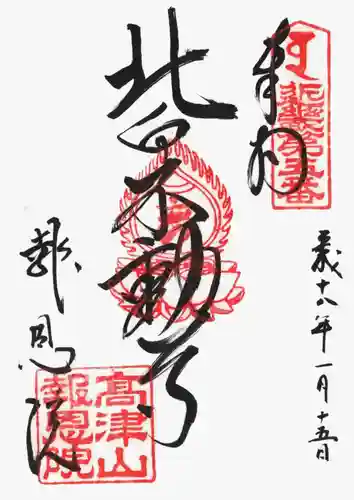 奉拝
近畿第五番
平成十八年一月十五日
北向不動尊
報恩院
高津山
報恩院